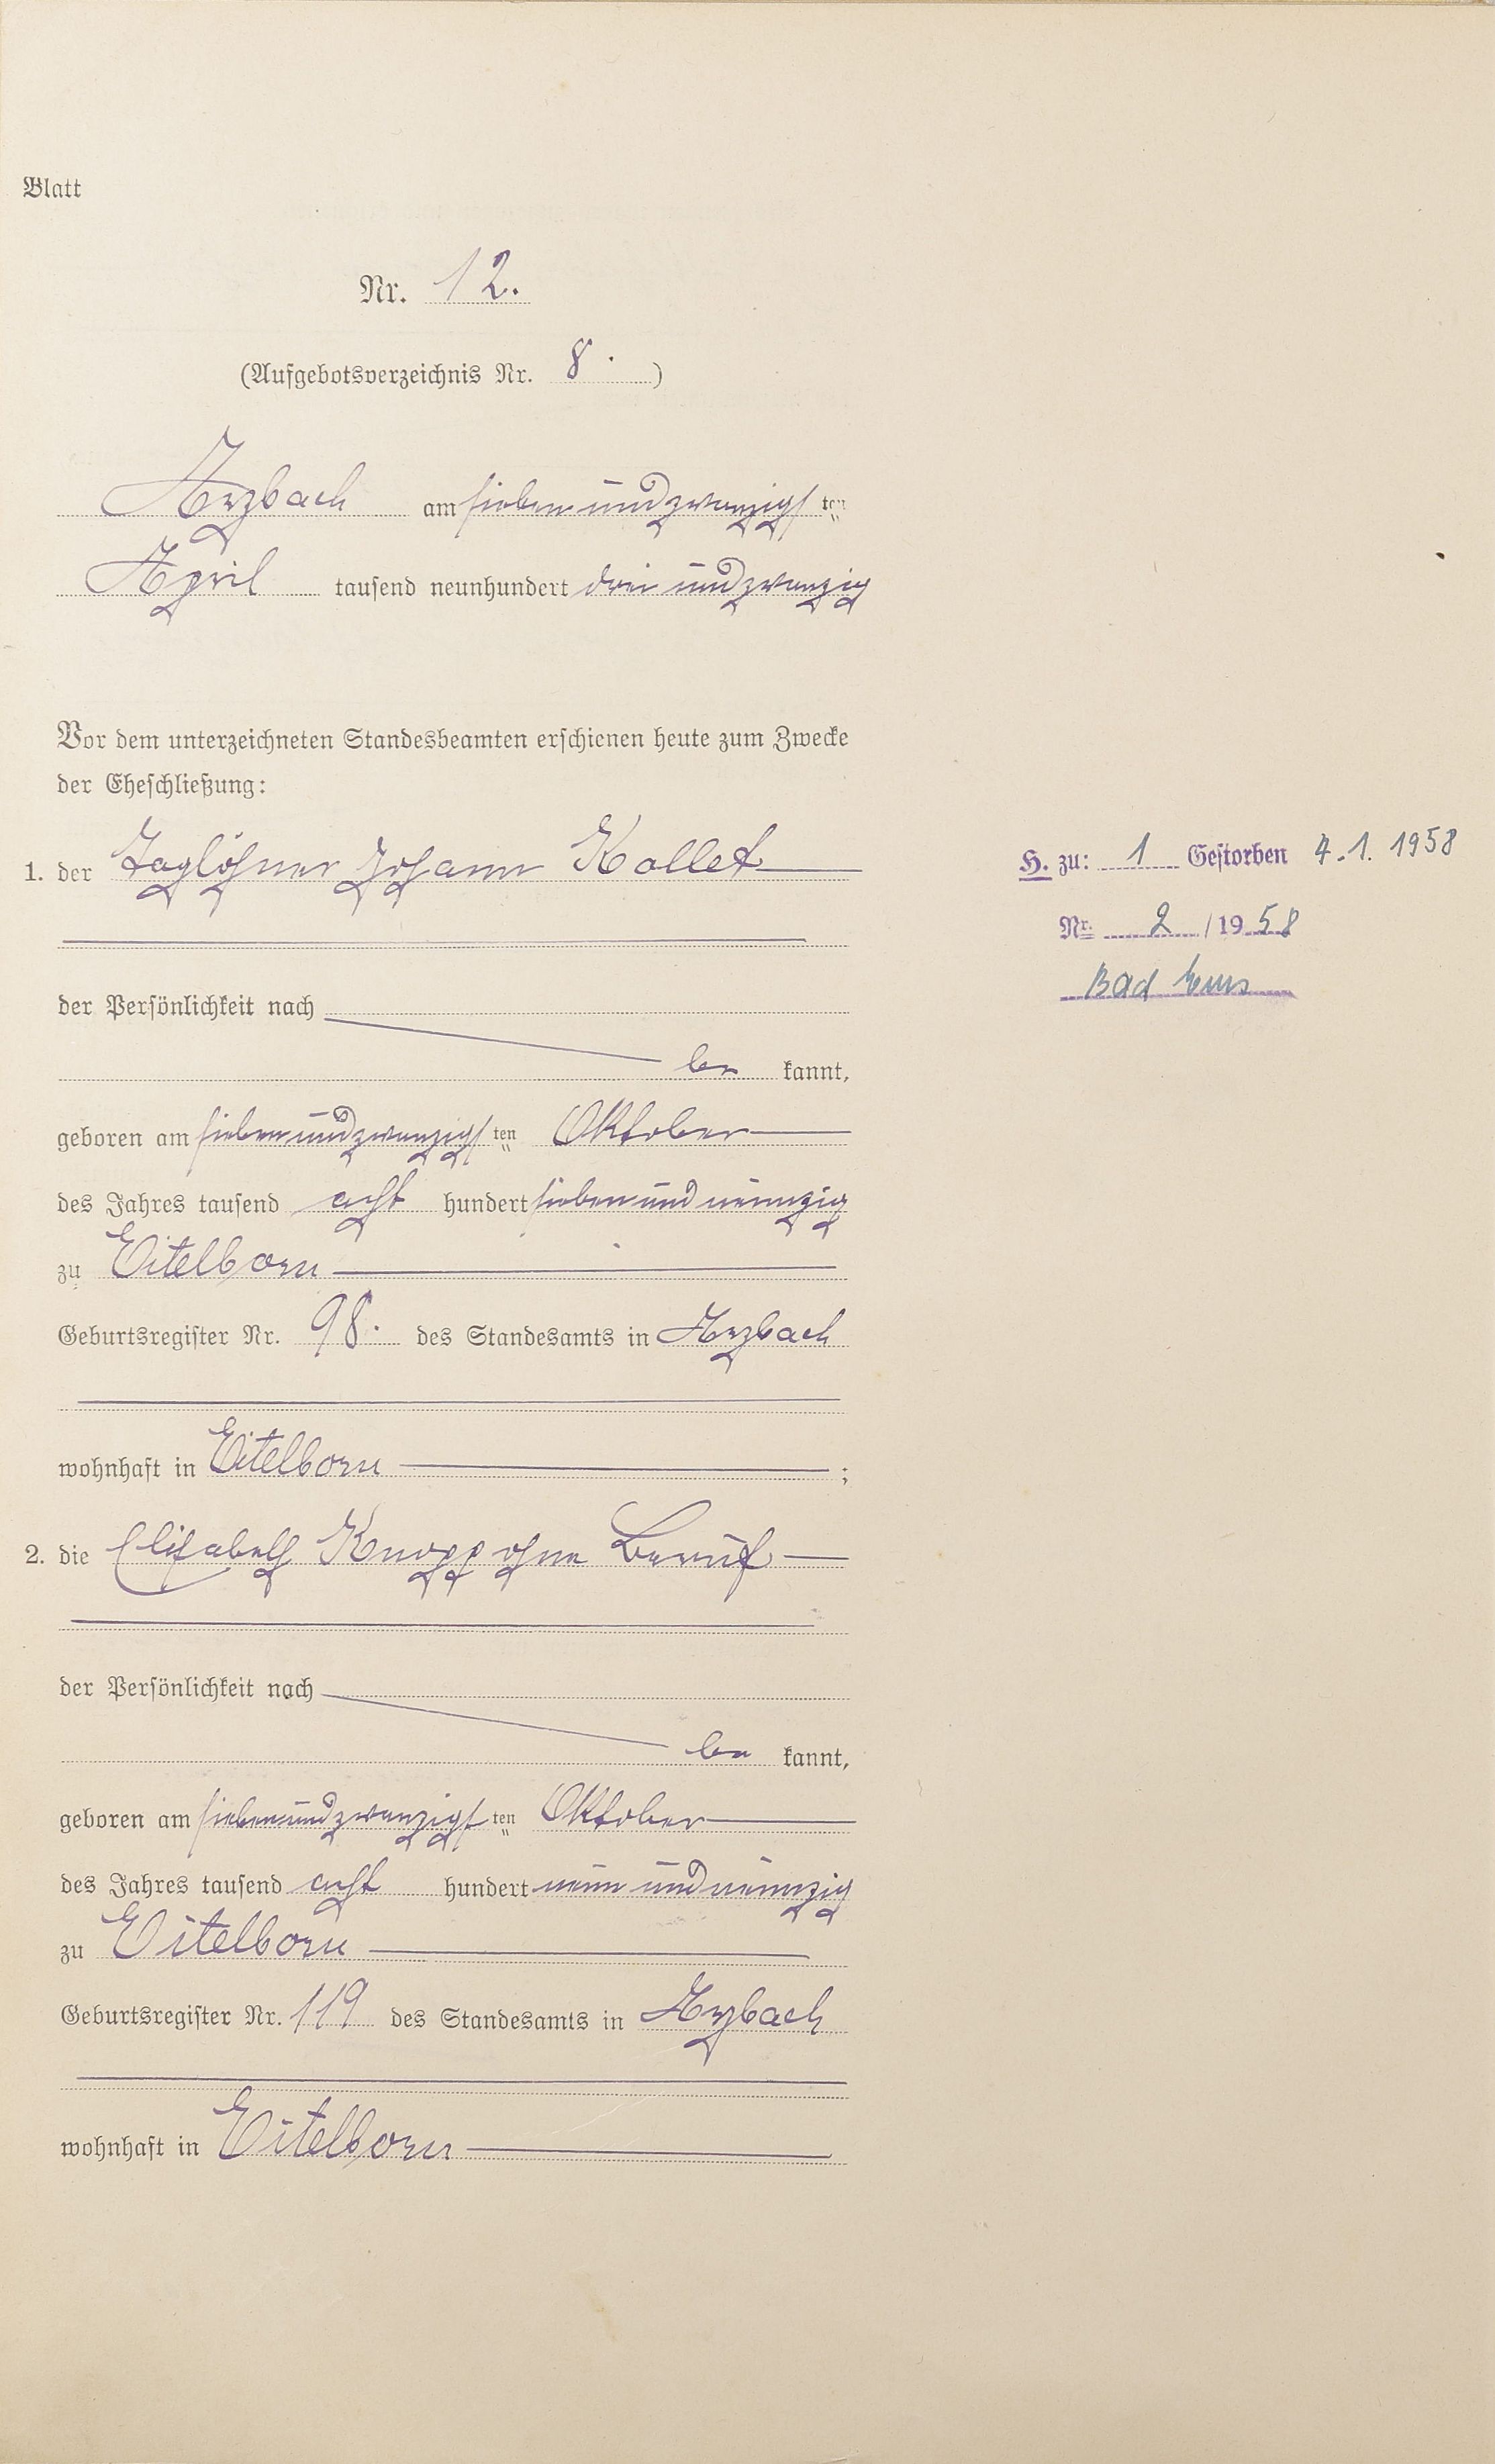 Blatt
Nr. 12.
(Aufgebotsverzeichnis Nr. 8.)
Arzbach am siebenundzwanzigsten
April tausend neunhundert dreiundzwanzig
Vor dem unterzeichneten Standesbeamten erschienen heute zum Zwecke
der Eheschließung:
1. der Taglöhner Johann Kollet
der Persönlichkeit nach
be kannt,
geboren am siebenundzwanzigsten Oktober
des Jahres tausend acht hundert siebenundneunzig
zu Eitelborn
Geburtsregister Nr. 98. des Standesamts in Arzbach
wohnhaft in Eitelborn ;
2. die Elisabeth Knopp ohne Beruf
der Persönlichkeit nach
be kannt,
geboren am siebenundzwanzigsten Oktober
des Jahres tausend acht hundert neunundneunzig
zu Eitelborn
Geburtsregister Nr. 119 des Standesamts in Arzbach
wohnhaft in Eitelborn
H. zu: 1 Gestorben 4.1.1958
Nr. 2/1958
Bad Ems